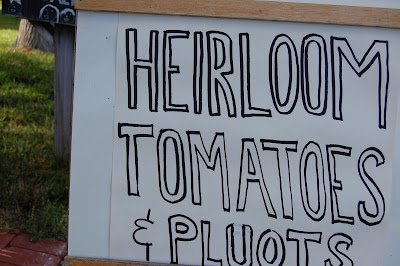 HEIRLOOM
TOMATOES
& PLUOTS